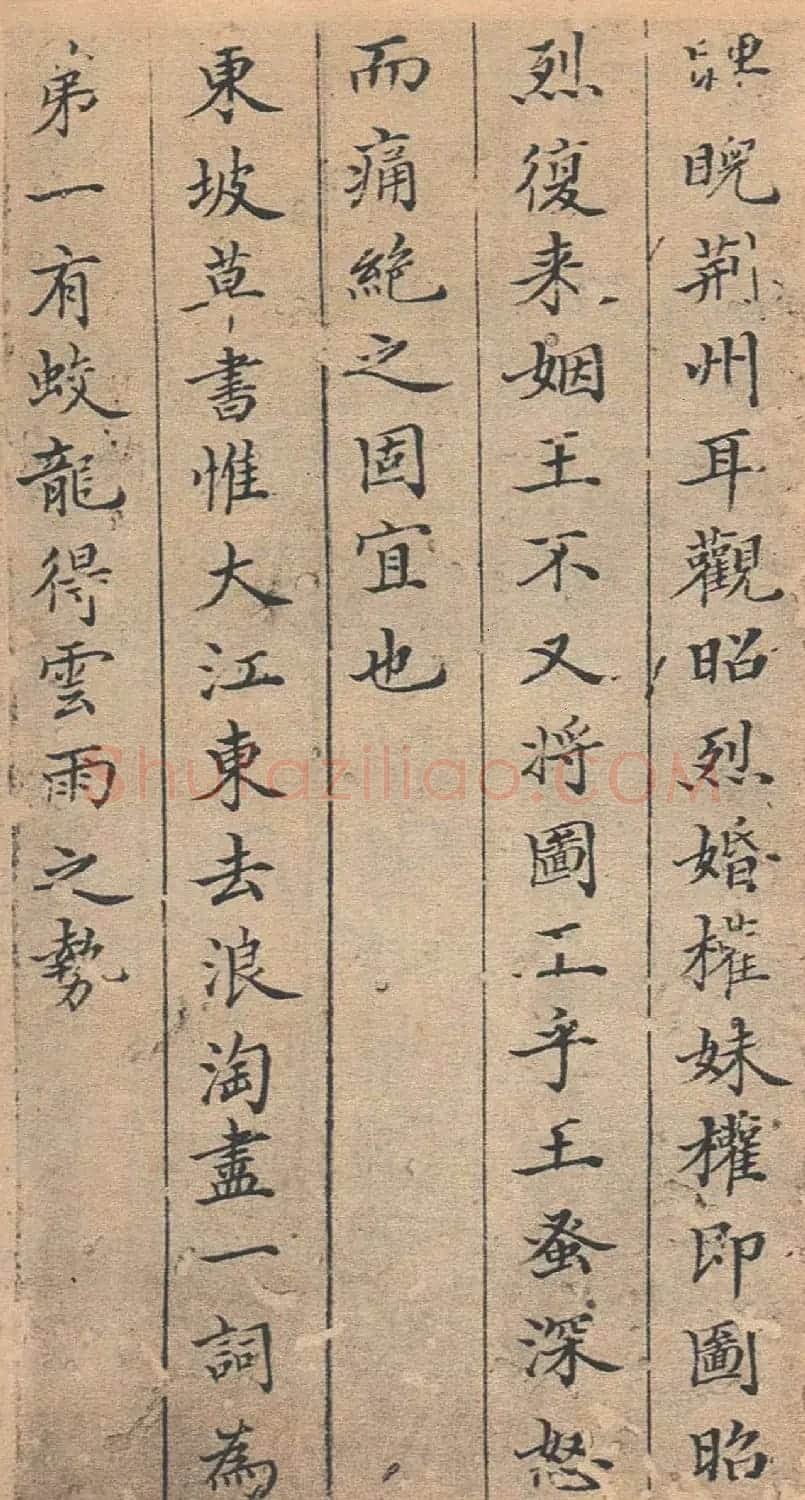 睨荊州耳觀昭烈婚權妹權即圖昭
烈復来姻王不又将圖王乎王蚤深怒
而痛絶之固宜也
東坡草書惟大江東去浪淘盡一詞為
弟一有蛟龍得雲雨之勢
shufaziliao.COM